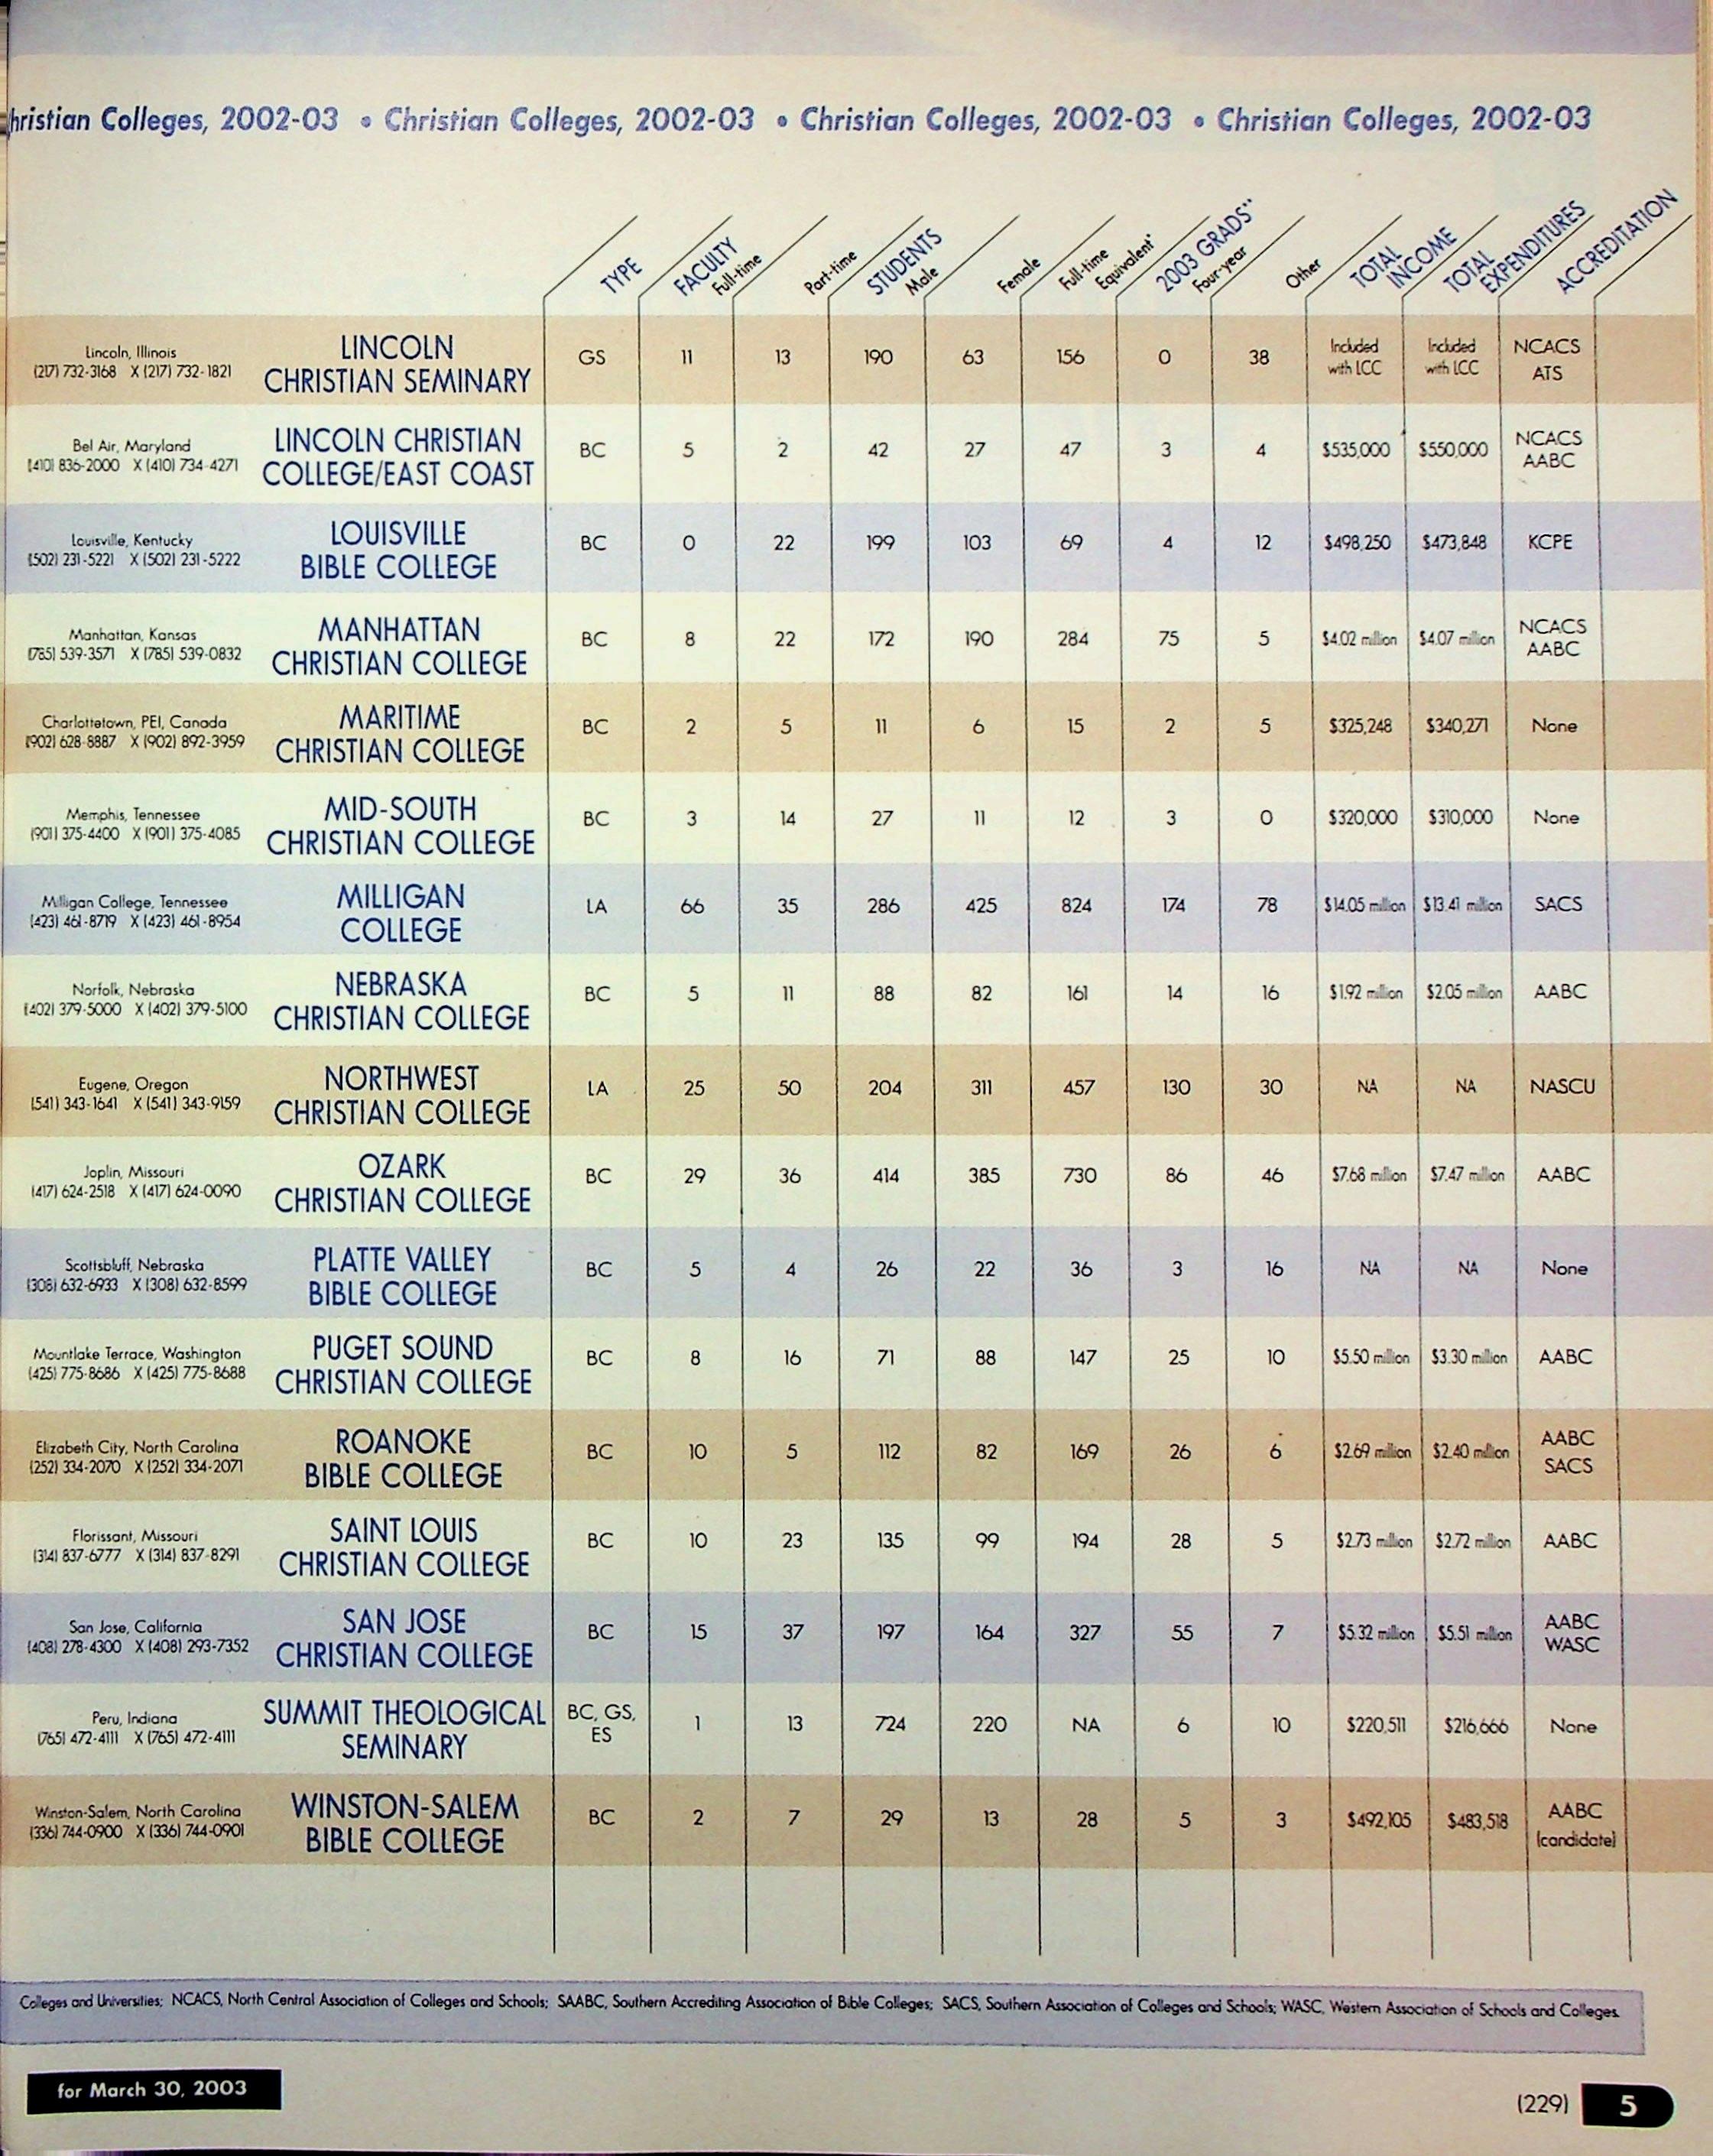 hristian Colleges, 2002-03 • Christian Colleges, 2002-03 • Christian Colleges, 2002-03 • Christian Colleges, 2002-03
TYPE FACULTY Full-time Part-time STUDENTS Male Female Full-time Equivalent* 2003 GRADS** Four-year Other TOTAL INCOME TOTAL EXPENDITURES ACCREDITATION
Lincoln, Illinois
(217) 732-3168 X (217) 732-1821
LINCOLN
CHRISTIAN SEMINARY
GS 11 13 190 63 156 0 38 Included with LCC Included with LCC NCACS ATS
Bel Air, Maryland
(410) 836-2000 X (410) 734-4271
LINCOLN CHRISTIAN
COLLEGE/EAST COAST
BC 5 2 42 27 47 3 4 $535,000 $550,000 NCACS AABC
Louisville, Kentucky
(502) 231-5221 X (502) 231-5222
LOUISVILLE
BIBLE COLLEGE
BC 0 22 199 103 69 4 12 $498,250 $473,848 KCPE
Manhattan, Kansas
(785) 539-3571 X (785) 539-0832
MANHATTAN
CHRISTIAN COLLEGE
BC 8 22 172 190 284 75 5 $4.02 million $4.07 million NCACS AABC
Charlottetown, PEI, Canada
(902) 628-8887 X (902) 892-3959
MARITIME
CHRISTIAN COLLEGE
BC 2 5 11 6 15 2 5 $325,248 $340,271 None
Memphis, Tennessee
(901) 375-4400 X (901) 375-4085
MID-SOUTH
CHRISTIAN COLLEGE
BC 3 14 27 11 12 3 0 $320,000 $310,000 None
Milligan College, Tennessee
(423) 461-8719 X (423) 461-8954
MILLIGAN
COLLEGE
LA 66 35 286 425 824 174 78 $14.05 million $13.41 million SACS
Norfolk, Nebraska
(402) 379-5000 X (402) 379-5100
NEBRASKA
CHRISTIAN COLLEGE
BC 5 11 88 82 161 14 16 $1.92 million $2.05 million AABC
Eugene, Oregon
(541) 343-1641 X (541) 343-9159
NORTHWEST
CHRISTIAN COLLEGE
LA 25 50 204 311 457 130 30 NA NA NASCU
Joplin, Missouri
(417) 624-2518 X (417) 624-0090
OZARK
CHRISTIAN COLLEGE
BC 29 36 414 385 730 86 46 $7.68 million $7.47 million AABC
Scottsbluff, Nebraska
(308) 632-6933 X (308) 632-8599
PLATTE VALLEY
BIBLE COLLEGE
BC 5 4 26 22 36 3 16 NA NA None
Mountlake Terrace, Washington
(425) 775-8686 X (425) 775-8688
PUGET SOUND
CHRISTIAN COLLEGE
BC 8 16 71 88 147 25 10 $5.50 million $3.30 million AABC
Elizabeth City, North Carolina
(252) 334-2070 X (252) 334-2071
ROANOKE
BIBLE COLLEGE
BC 10 5 112 82 169 26 6 $2.69 million $2.40 million AABC SACS
Florissant, Missouri
(314) 837-6777 X (314) 837-8291
SAINT LOUIS
CHRISTIAN COLLEGE
BC 10 23 135 99 194 28 5 $2.73 million $2.72 million AABC
San Jose, California
(408) 278-4300 X (408) 293-7352
SAN JOSE
CHRISTIAN COLLEGE
BC 15 37 197 164 327 55 7 $5.32 million $5.51 million AABC WASC
Peru, Indiana
(765) 472-4111 X (765) 472-4111
SUMMIT THEOLOGICAL
SEMINARY
BC, GS, ES 1 13 724 220 NA 6 10 $220,511 $216,666 None
Winston-Salem, North Carolina
(336) 744-0900 X (336) 744-0901
WINSTON-SALEM
BIBLE COLLEGE
BC 2 7 29 13 28 5 3 $492,105 $483,518 AABC (candidate)
Colleges and Universities; NCACS, North Central Association of Colleges and Schools; SAABC, Southern Accrediting Association of Bible Colleges; SACS, Southern Association of Colleges and Schools; WASC, Western Association of Schools and Colleges.
for March 30, 2003
(229) 5